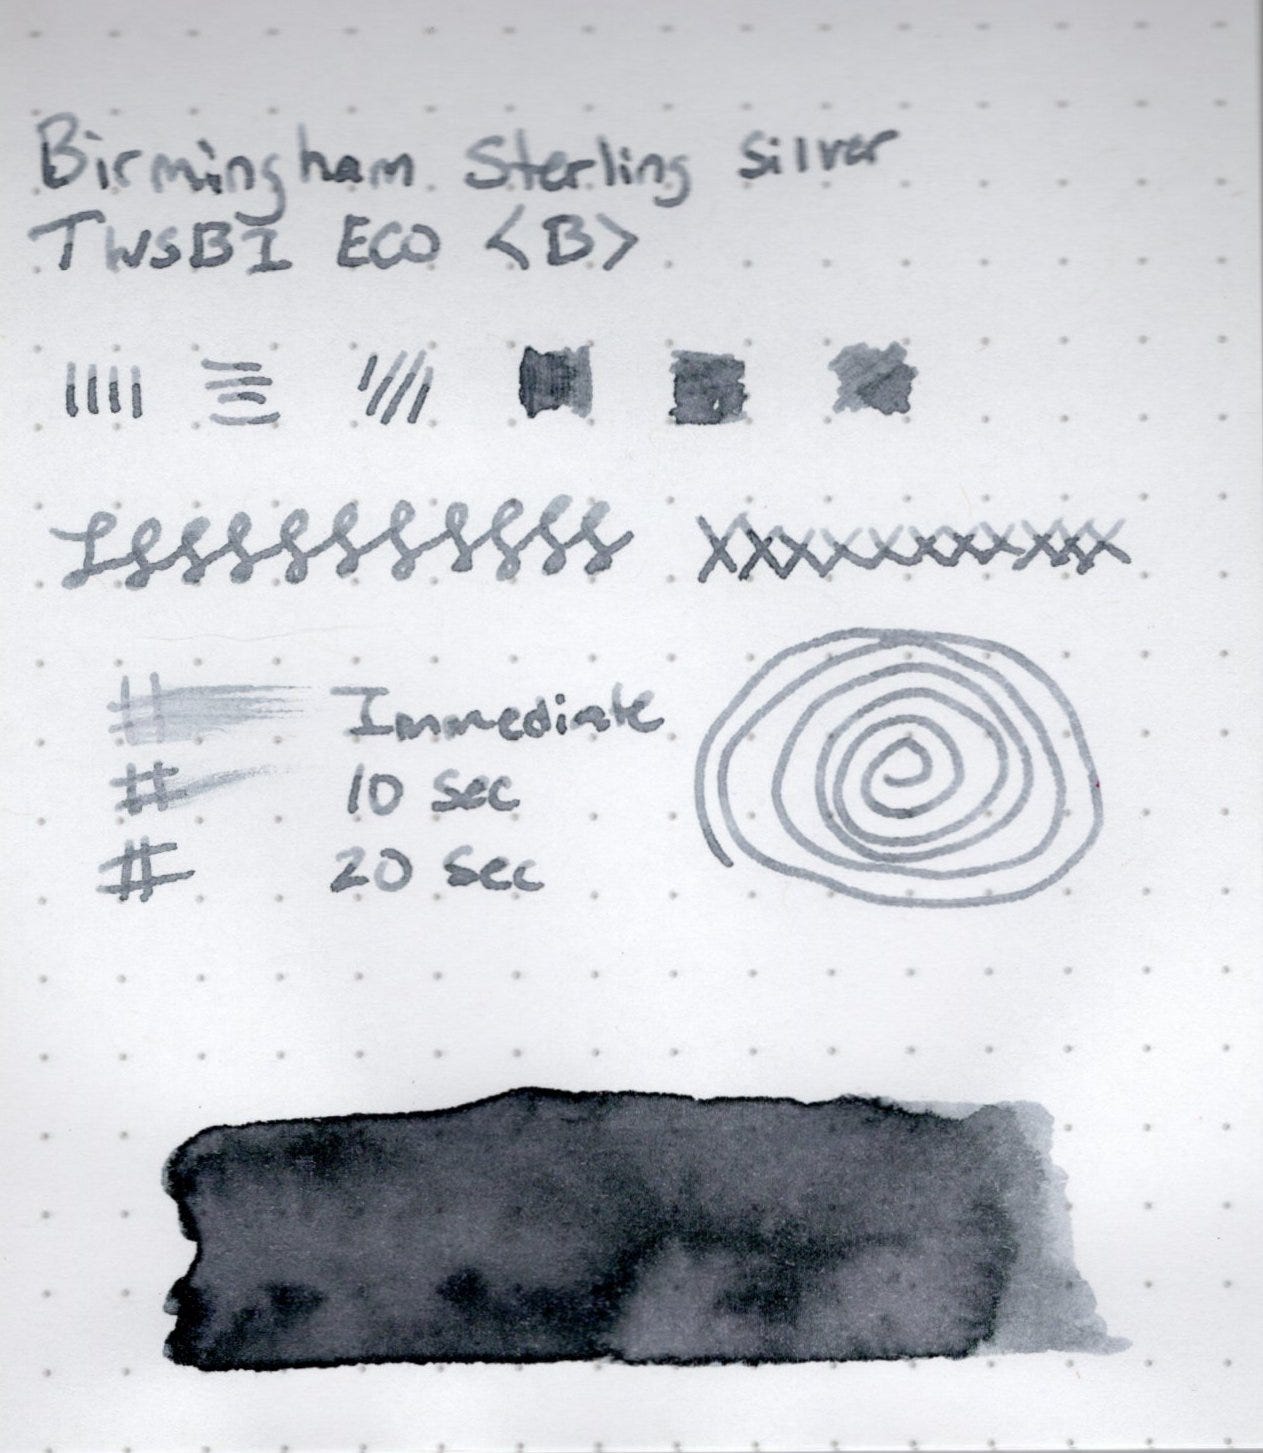 Birmingham Sterling Silver
TWSBI ECO <B>
# Immediate
# 10 sec
# 20 sec